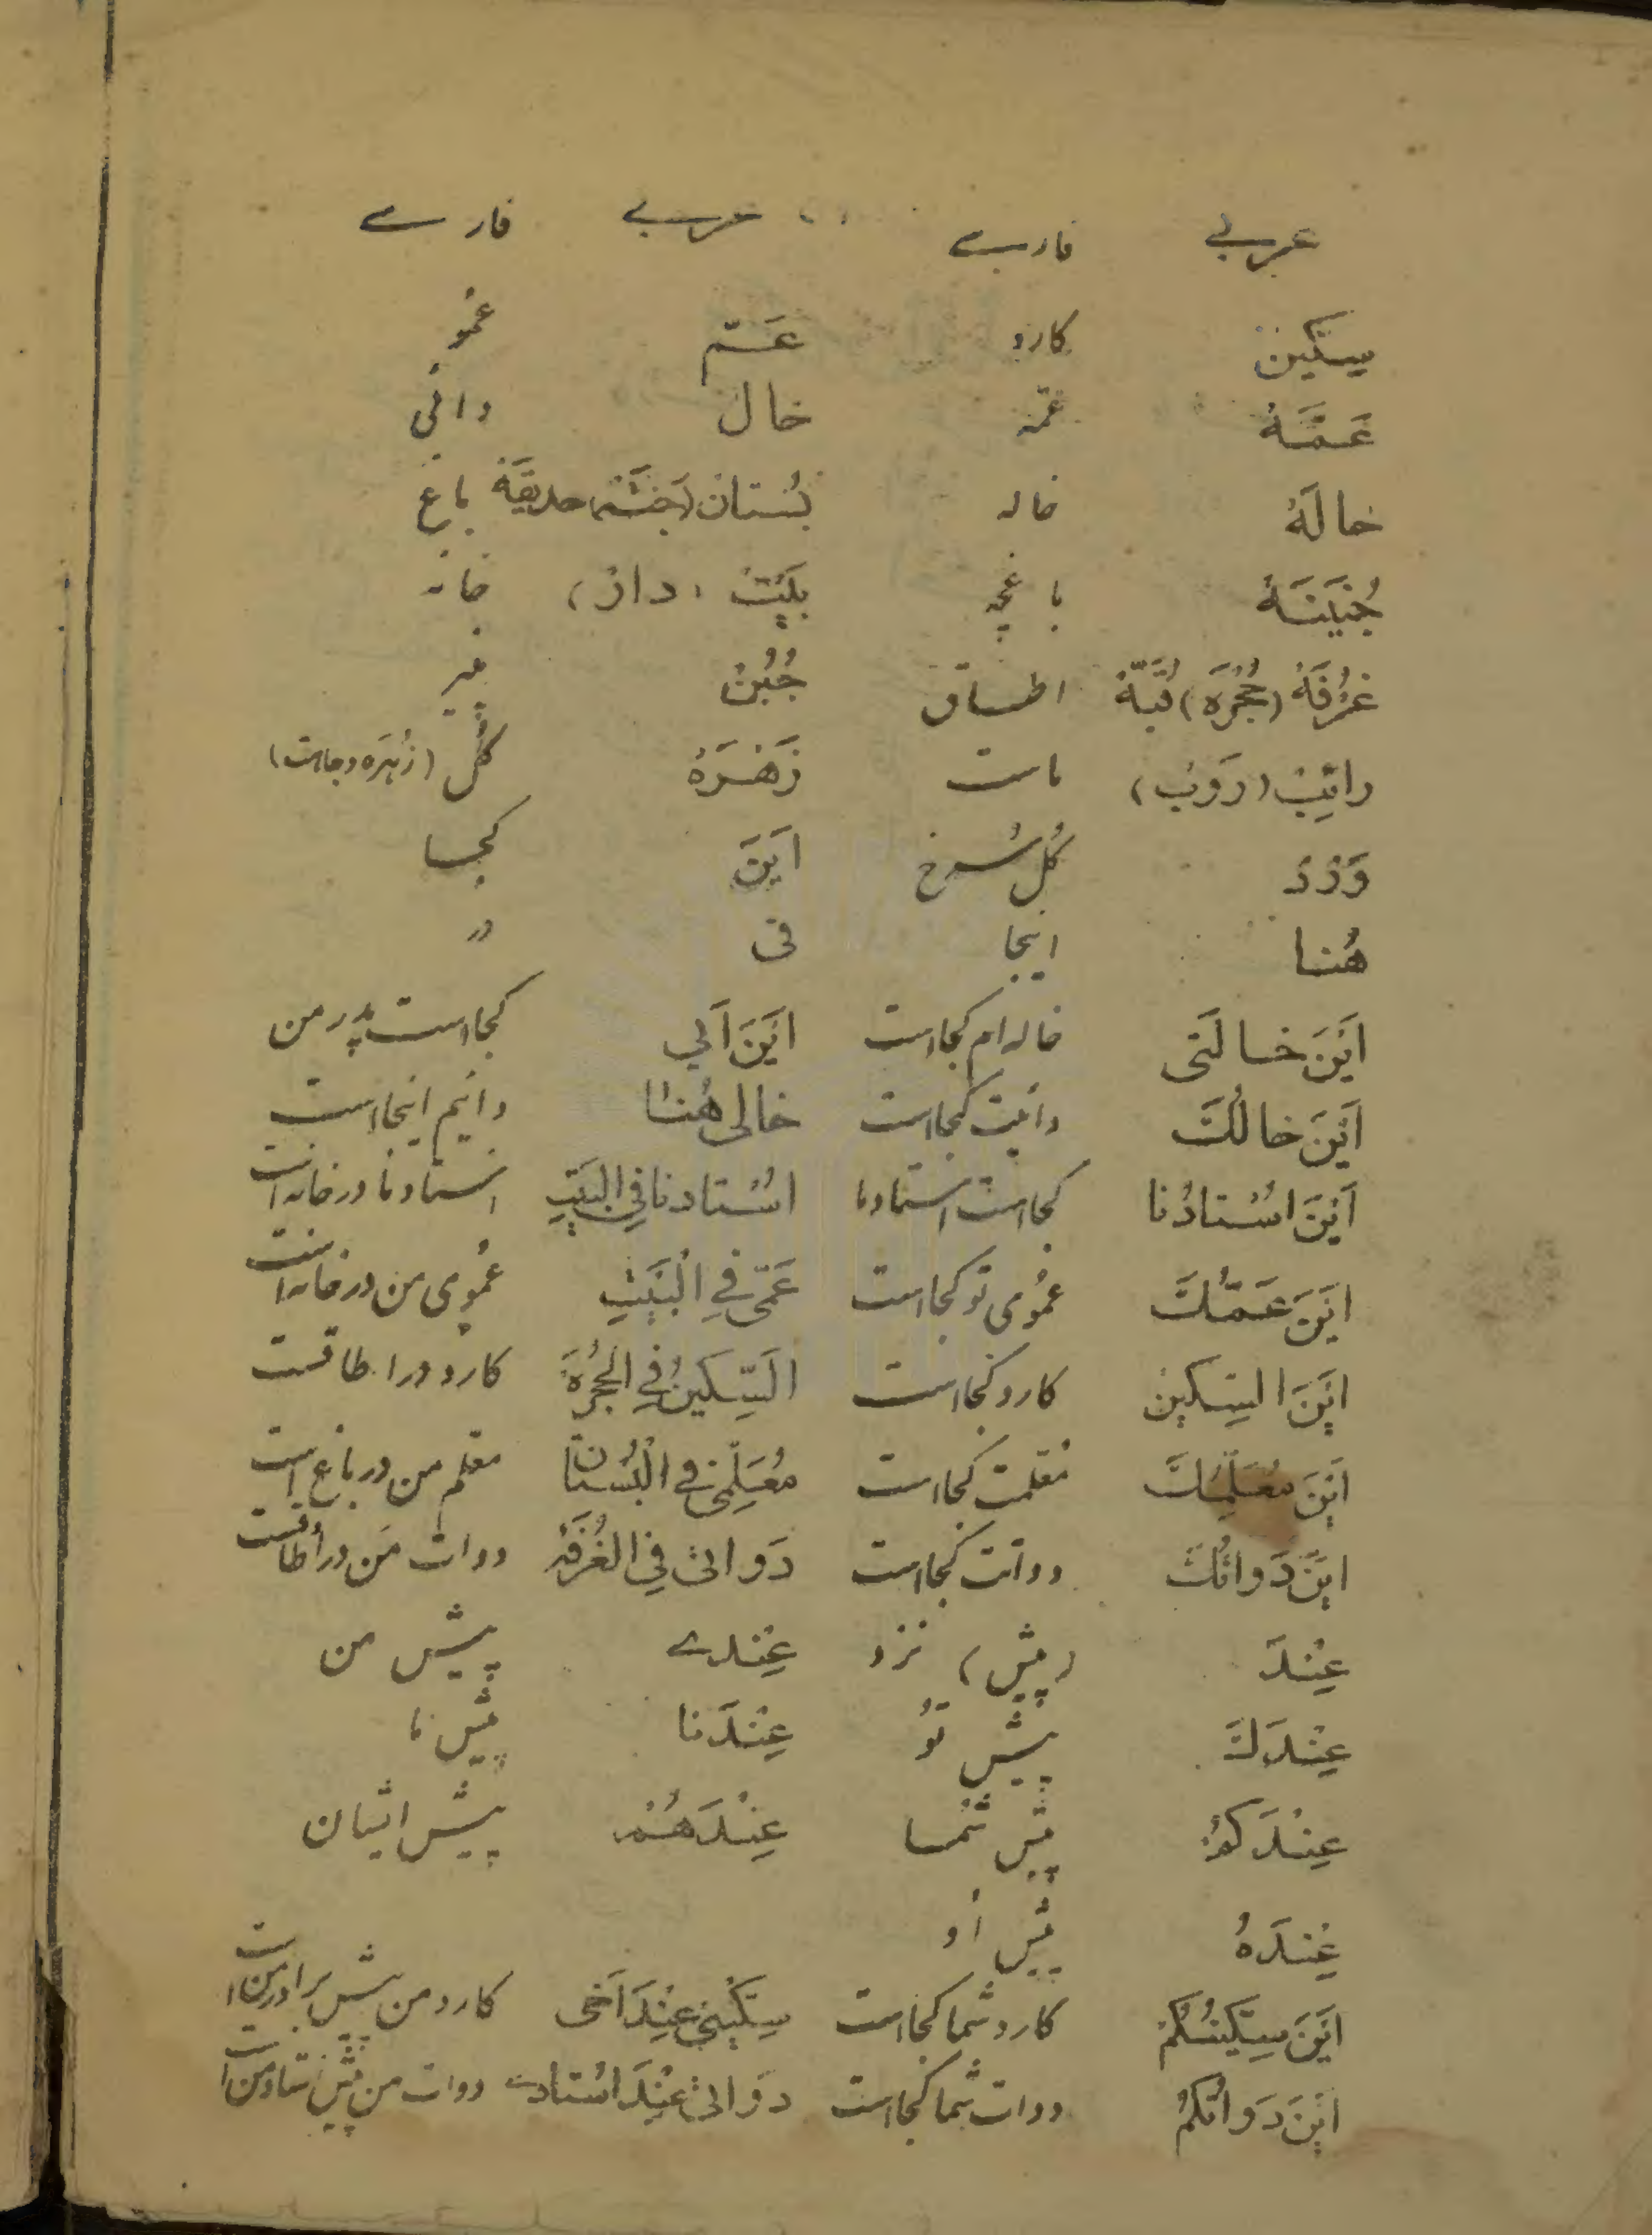 عربی فارسی عربی فارسی
سِكّين کارد عَمّ عمُو
عَمَّةُ عمّه خال دائی
خالَةُ خاله بُستان (جَنَّة) حديقَة باغ
جُنَينَةُ باغچه بَيْتُ (دارُ) خانه
غُرْفَةُ (حُجُرَه) قُبَّةُ اطاق جُبُنْ پنیر
رائِبُ (رَوْبُ) ماست زَهْرَةُ گُل (زُهَره وجاهت)
وَرْدُ گُل سُرخ اَيْنَ کجا
هُنا اینجا فی در
اَيْنَ خالَتی خاله ام کجا است اَيْنَ اَبی کجا است پدر من
اَيْنَ خالُكَ دائیت کجا است خالی هُنا دائیم اینجا است
اَيْنَ اُسْتادُنا کجا است استاد ما اُسْتادنا فِی الْبَيْتِ استاد ما در خانه است
اَيْنَ عَمُّكَ عمُوی تو کجا است عَمّی فِی الْبَيْتِ عمُوی من در خانه است
اَيْنَ السِّكين کارد کجا است اَلسِّكينُ فِی الحُجْرَة کارد در اطاقست
اَيْنَ مُعَلِّمُكَ مُعلمت کجا است مُعَلِّمی فی الْبُسْتان معلم من در باغ است
اَيْنَ دَواتُكَ دواتت کجا است دَواتی فِی الْغُرْفَة دوات من در اطاقست
عِنْدَ (پیش) نزد عِنْدی پیش من
عِنْدَكَ پیش تو عِنْدَنا پیش ما
عِنْدَكُمْ پیش شما عِنْدَهُمْ پیش ایشان
عِنْدَهُ پیش او
اَيْنَ سِكّينُكُمْ کارد شما کجا است سِكّينی عِنْدَ اَخی کارد من پیش برادر من است
اَيْنَ دَواتُكُمْ دوات شما کجا است دَواتی عِنْدَ اُسْتادی دوات من پیش استاد من است